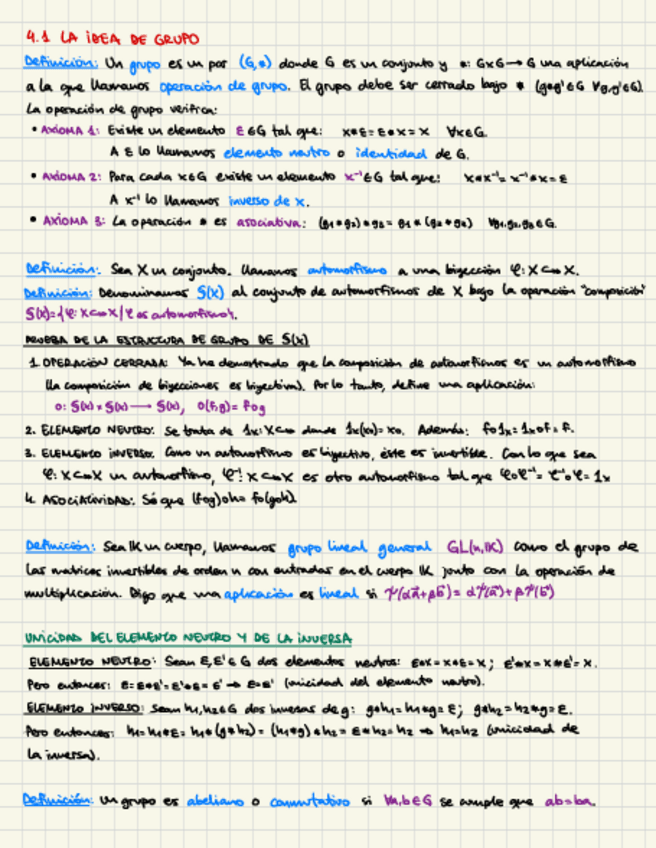 4.1 LA IDEA DE GRUPO
Definición: Un grupo es un par (G,*) donde G es un conjunto y *: G×G → G una aplicación
a la que llamamos operación de grupo. El grupo debe ser cerrado bajo * (g*g'∈G ∀g,g'∈G).
La operación de grupo verifica:
• AXIOMA 1: Existe un elemento ε∈G tal que: x*ε=ε*x=x ∀x∈G.
A ε lo llamamos elemento neutro o identidad de G.
• AXIOMA 2: Para cada x∈G existe un elemento x⁻¹∈G tal que: x*x⁻¹=x⁻¹*x=ε
A x⁻¹ lo llamamos inverso de x.
• AXIOMA 3: La operación * es asociativa: (g₁*g₂)*g₃=g₁*(g₂*g₃) ∀g₁,g₂,g₃∈G.
Definición: Sea X un conjunto. Llamamos automorfismo a una biyección φ: X↔X.
Definición: Denominamos S(X) al conjunto de automorfismos de X bajo la operación "composición"
S(X)={φ: X↔X/φ es automorfismo}.
PRUEBA DE LA ESTRUCTURA DE GRUPO DE S(X)
1. OPERACIÓN CERRADA: Ya he demostrado que la composición de automorfismos es un automorfismo
(la composición de biyecciones es biyectiva). Por lo tanto, define una aplicación:
o: S(X)×S(X) → S(X), o(f,g)= fog
2. ELEMENTO NEUTRO: Se trata de 1x: X↔X donde 1x(x₀)=x₀. Además: fo1x=1xof=f.
3. ELEMENTO INVERSO: Como un automorfismo es biyectivo, éste es invertible. Con lo que sea
φ: X↔X un automorfismo, φ⁻¹: X↔X es otro automorfismo tal que φoφ⁻¹=φ⁻¹oφ=1x
4. ASOCIATIVIDAD: Sé que (fog)oh=fo(goh).
Definición: Sea 𝕂 un cuerpo, llamamos grupo lineal general GL(n,𝕂) como el grupo de
las matrices invertibles de orden n con entradas en el cuerpo 𝕂 junto con la operación de
multiplicación. Digo que una aplicación es lineal si ψ(αa⃗+βb⃗)=αψ(a⃗)+βψ(b⃗)
UNICIDAD DEL ELEMENTO NEUTRO Y DE LA INVERSA
ELEMENTO NEUTRO: Sean ε,ε'∈G dos elementos neutros: ε*x=x*ε=x; ε'*x=x*ε'=x.
Pero entonces: ε=ε*ε'=ε'*ε=ε' → ε=ε' (unicidad del elemento neutro).
ELEMENTO INVERSO: Sean h₁,h₂∈G dos inversas de g: g*h₁=h₁*g=ε; g*h₂=h₂*g=ε.
Pero entonces: h₁=h₁*ε=h₁*(g*h₂)=(h₁*g)*h₂=ε*h₂=h₂ → h₁=h₂ (unicidad de
la inversa).
Definición: Un grupo es abeliano o conmutativo si ∀a,b∈G se cumple que ab=ba.